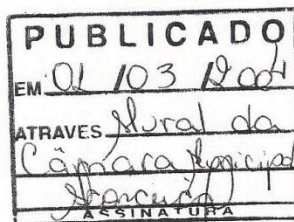 PUBLICADO
EM 01/03/2001
ATRAVES Mural da
Câmara Municipal
ASSINATURA